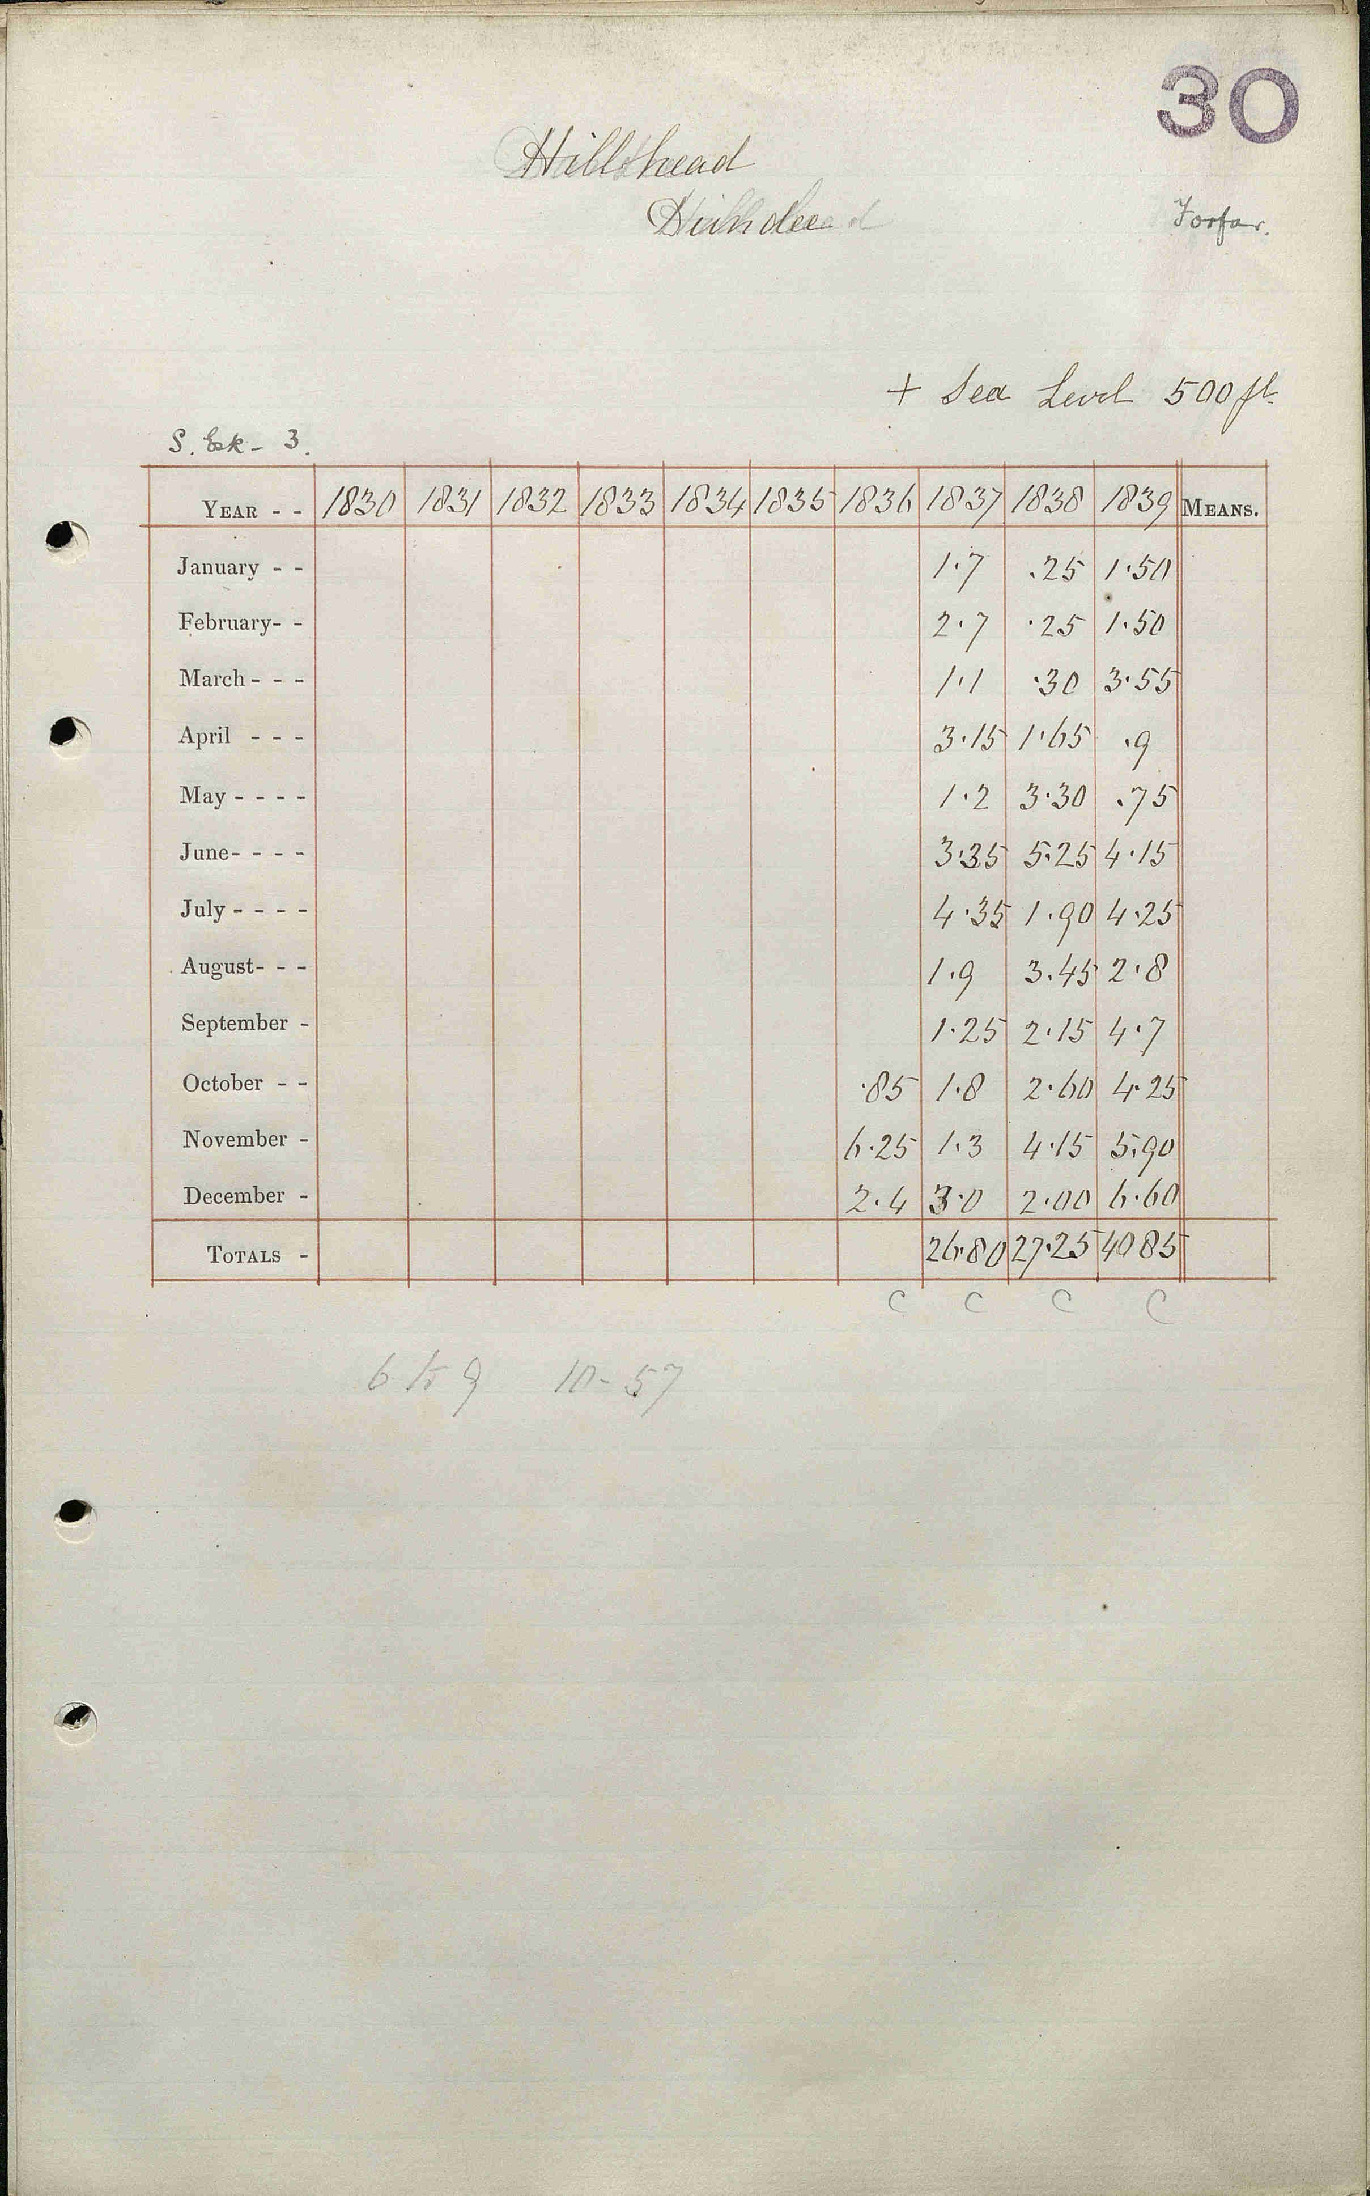 30
Hillshead
Forfar.
+ Sea Level 500 ft.
S. Esk - 3.
YEAR - - 1830 1831 1832 1833 1834 1835 1836 1837 1838 1839 MEANS.
January - - 1.7 .25 1.50
February - - 2.7 .25 1.50
March - - - 1.1 .30 3.55
April - - - 3.15 1.65 .9
May - - - - 1.2 3.30 .75
June - - - - 3.35 5.25 4.15
July - - - - 4.35 1.90 4.25
August - - - 1.9 3.45 2.8
September - 1.25 2.15 4.7
October - - .85 1.8 2.60 4.25
November - 6.25 1.3 4.15 5.90
December - 2.4 3.0 2.00 6.60
TOTALS - 26.80 27.25 40 85
C C C C
10 - 57